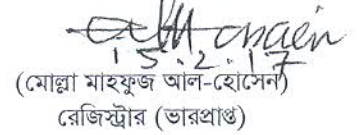 15.2.17
(মোল্লা মাহফুজ আল-হোসেন)
রেজিস্ট্রার (ভারপ্রাপ্ত)